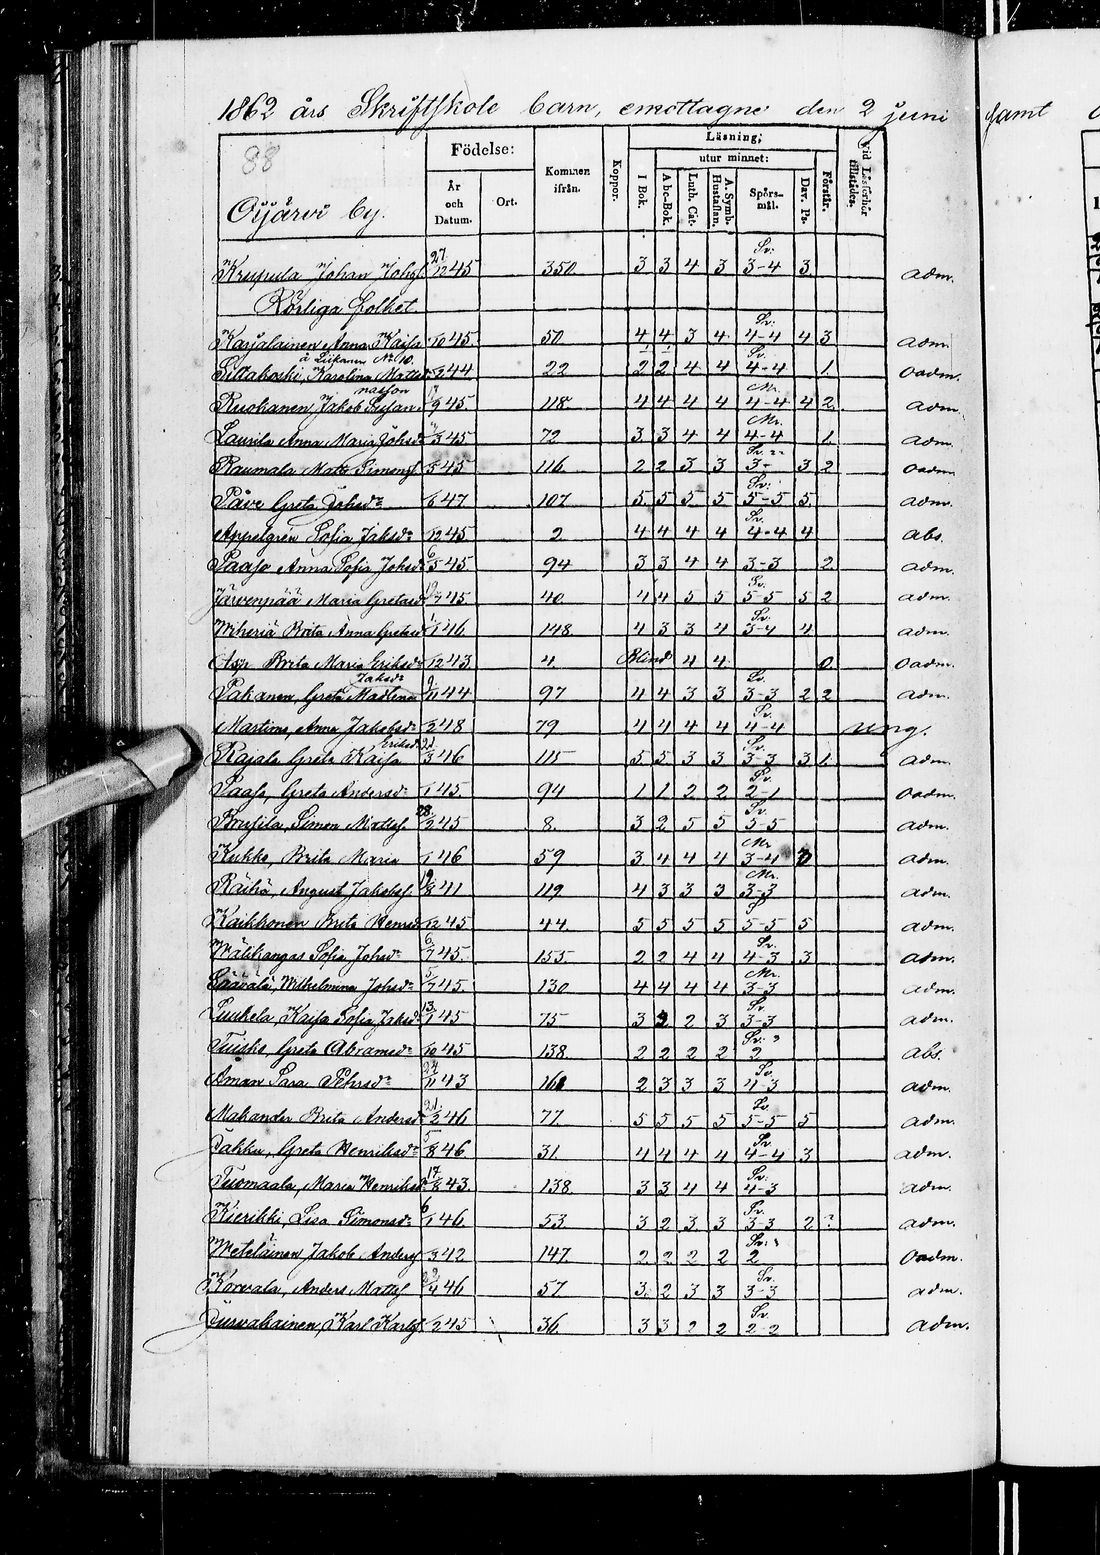 1862 års Skriftskole barn, emottagne den 2 juni samt
88
Oijärvi by.
Födelse:
År och Datum.
Ort.
Kommen ifrån.
Koppor.
Läsning;
utur minnet:
I Bok.
Abc-Bok.
Luth. Cat.
A. Symb. Hustaflan.
Spörs-mål.
Dav. Ps.
Förstår.
Vid Läseförhör tillstädes.
Sv.
Krupula Johan Johss 27/12 45 350 3 3 4 3 3-4 3 adm.
Rörliga folket.
Sv.
Karjalainen Anna Kaisa /10 45 50 4 4 3 4 4-4 4 3 adm.
å Liikanen No 10. Sv.
Karolina Matts 44 22 2 2 4 4 4-4 1 oadm.
Mr.
Ruohanen, Jakob 9 45 118 4 4 4 4 4-4 4 2 adm.
Mr.
Laurila Anna Maria Johsdr /3 45 72 3 3 4 4 4-4 1 adm.
Sv.
Raumala Matts Simonss /5 45 116 2 2 3 3 3- 3 2 oadm.
Sv.
Påve Greta Johsdr /6 47 107 5 5 5 5 5-5 5 adm.
Sv.
Appelgrén Sofia Jaksdr /12 45 2 4 4 4 4 4-4 4 abs.
Paaso Anna Sofia Johsdr 6/5 45 94 3 3 4 4 3-3 2 adm.
Sv.
Järvenpää Maria Gretasdr 45 40 4 4 5 5 5-5 5 2 adm.
Sv.
Wiheriä Brita Anna Gretasdr 46 148 4 3 3 4 3-4 4 adm.
Asp Brita Maria Eriksdr /12 43 4 Blind 4 4 0 oadm.
Jaksdr Sv.
Pakanen, Greta Madlena /11 44 97 4 4 3 3 3-3 2 2 adm.
Sv.
Martimo, Anna Jakobsdr /3 48 79 4 4 4 4 4-4 ung.
Eriksd. Sv.
Rajala Greta Kaisa 21/3 46 115 5 5 3 3 3-3 3 1 adm.
Sv.
Paaso, Greta Andersdr /1 45 94 1 1 2 2 2-1 oadm.
Sv.
Simon Mattss. 28/2 45 8 3 2 5 5 5-5 adm.
Mr.
Kukko, Brita Maria /1 46 59 3 4 4 4 3-4 3 adm.
Mr.
Räihä, August Jakobss. 19/8 41 119 4 3 3 3 3-3 adm.
Kaikkonen Brita Henrsdr /12 45 44 5 5 5 5 5-5 5 adm.
Sv.
Wälikangas Sofia Johsdr 6/7 45 155 2 2 4 4 4-3 3 adm.
Mr.
Säävälä, Wilhelmina Johsdr 5/7 45 130 4 4 4 4 3-3 adm.
Sv.
Luukela, Kaisa Sofia Jaksdr 13/1 45 75 3 2 2 3 3-3 adm.
Sv. ?
Tuisko, Greta Abramsdr /10 45 138 2 2 2 2 2 abs.
Sv.
Åman Sara Pehrsdr 24/11 43 161 2 3 3 3 4-3 adm.
Sv.
Mahander Brita Andersdr 21/2 46 77 5 5 5 5 5-5 5 adm.
Sv.
Jakku, Greta Henriksdr 5/8 46 31 4 4 4 4 4-4 3 adm.
Sv.
Tuomaala, Maria Henriksdr 17/8 43 138 3 3 4 4 4-3 adm.
Sv.
Kierikki, Lisa Simonsdr 6/1 46 53 3 2 3 3 3-3 2 ? adm.
Sv.
Weteläinen Jakob Anderss /3 42 147 2 2 2 2 2 oadm.
Sv.
Korvala, Anders Mattss /4 46 57 3 2 3 3 3-3 adm.
Sv.
Jurvakainen, Karl Karlss /2 45 36 3 3 2 2 2-2 adm.